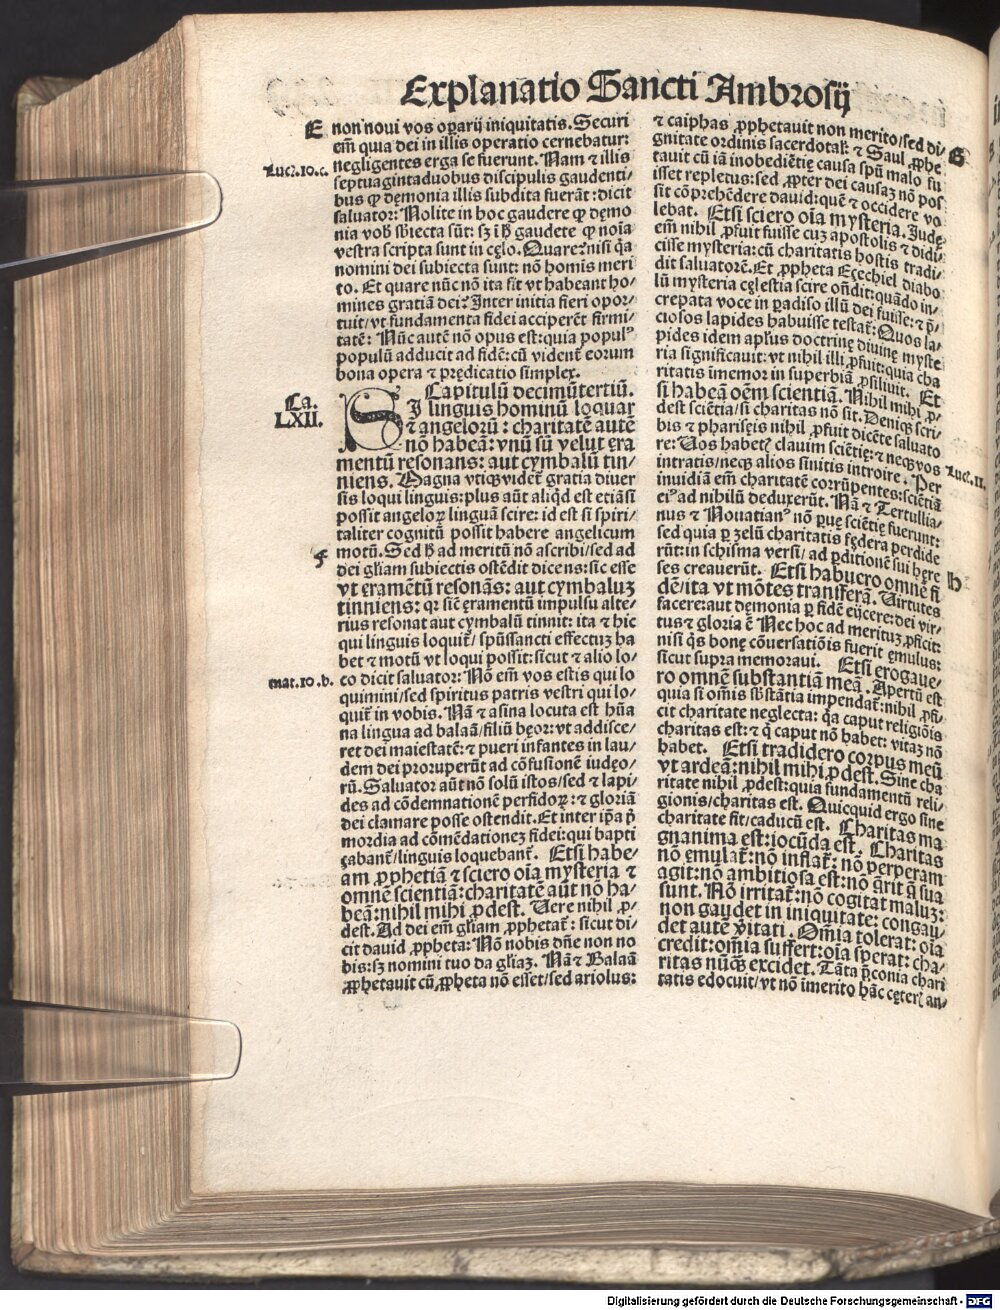 Explanatio Sancti Ambrosij
E
non noui vos oꝑarij iniquitatis. Securi
em̄ quia dei in illis operatio cernebatur:
Luc̄. 10. c.
negligentes erga se fuerunt. Nam ⁊ illis
septuagintaduobus discipulis gaudenti/
bus ꝙ dęmonia illis subdita fuerāt: dicit
saluator: Nolite in hoc gaudere ꝙ demo
nia vob̄ sb̄iecta sūt: sꝫ ī h̄ gaudete ꝙ noīa
vestra scripta sunt in cęlo. Quare? nisi q̄a
nomini dei subiecta sunt: nō homis meri
to. Et quare nūc nō ita fit vt habeant ho/
mines gratiā dei? Inter initia fieri opor/
tuit/vt fundamenta fidei acciperēt firmi/
tatē: Nūc autē nō opus est: quia populꝰ
populū adducit ad fidē: cū vident̄ eorum
bona opera ⁊ prędicatio simplex.
Ca.
LXII.
Capitulū decimūtertiū.
SI linguis hominū loquar
⁊ angelorū: charitatē autē
nō habeā: vnū sū velut ęra
mentū resonans: aut cymbalū tin/
niens. Magna vtiqꝫ videt̄ gratia diuer
sis loqui linguis: plus aūt aliqd est etiāsi
possit angeloꝝ linguā scire: id est si spiri/
taliter cognitū possit habere angelicum
F
motū. Sed h̄ ad meritū nō ascribi/sed ad
dei gl̄iam subiectis ostēdit dicens: sic esse
vt ęramētū resonās: aut cymbaluꝫ
tinniens: qꝛ sic̄ ęramentū impulsu alte/
rius resonat aut cymbalū tinnit: ita ⁊ hic
qui linguis loquit̄/spūssancti effectuꝫ ha
bet ⁊ motū vt loqui possit: sicut ⁊ alio lo/
mat. 10. b.
co dicit saluator: Nō em̄ vos estis qui lo
quimini/sed spiritus patris vestri qui lo/
quit̄ in vobis. Nā ⁊ asina locuta est hūa
na lingua ad balaā/filiū beor: vt addisce/
ret dei maiestatē: ⁊ pueri infantes in lau/
dem dei proruperūt ad cōfusionē iudęo/
rū. Saluator aūt nō solū istos/sed ⁊ lapi/
des ad cōdemnationē perfidoꝝ: ⁊ gloriā
dei clamare posse ostendit. Et inter ip̄a p̄
mordia ad cōmēdationeꝫ fidei: qui bapti
çabant̄/linguis loquebant̄. Etsi habe/
am ꝓphetiā ⁊ sciero oīa mysteria ⁊
omnē scientiā: charitatē aūt nō ha/
beā: nihil mihi ꝓdest. Uere nihil ꝓ/
dest. Ad dei em̄ gl̄iam ꝓphetat̄: sicut di/
cit dauid ꝓpheta: Nō nobis dn̄e non no
bis: sꝫ nomini tuo da gl̄iaꝫ. Nā ⁊ Balaā
ꝓphetauit cū ꝓpheta nō esset/sed ariolus:
⁊ caiphas ꝓphetauit non merito/sed di/
G
gnitate ordinis sacerdotal̄: ⁊ Saul ꝓphe
tauit cū iā inobediētię causa spū malo fu
isset repletus: sed ꝓpter dei causaꝫ nō pos
sit cōprehēdere dauid: quē ⁊ occidere vo
lebat. Etsi sciero oīa mysteria. Judę
em̄ nihil ꝓfuit fuisse cuꝫ apostolis ⁊ didi/
cisse mysteria: cū charitatis hostis tradi/
dit saluatorē. Et ꝓpheta Eçechiel diabo
lū mysteria cęlestia scire on̄dit: quādo in/
crepata voce in ꝑadiso illū dei fuisse: ⁊ p̄/
ciosos lapides habuisse testat̄: Quos la/
pides idem apl̄us doctrinę diuinę myste
ria significauit: vt nihil illi ꝓfuit: quia cha
ritatis īmemor in superbiā ꝓsiliuit. Et
si habeā oēm scientiā. Nihil mihi ꝓ/
dest sciētia/si charitas nō sit. Deniqꝫ scri/
bis ⁊ pharisęis nihil ꝓfuit dicēte saluato
re: Uos habetꝭ clauim sciētię: ⁊ neqꝫ vos
Luc̄. 11.
intratis/neqꝫ alios sinitis introire. Per
inuidiā em̄ charitatē corrūpentes: sciētiā
eiꝰ ad nihilū deduxerūt. Nā ⁊ Tertullia/
nus ⁊ Nouatianꝰ nō ꝑuę sciētię fuerunt:
sed quia ꝑ zelū charitatis fędera perdide
rūt: in schisma versi/ad ꝑditionē sui hęre
h
ses creauerūt. Etsi habuero omnē fi
dē/ita vt mōtes transferā. Uirtutes
facere: aut dęmonia ꝑ fidē eijcere: dei vir/
tus ⁊ gloria ē Nec hoc ad merituꝫ ꝓficit:
nisi q̄s bonę cōuersatiōis fuerit ęmulus:
sicut supra memoraui. Etsi erogaue/
ro omnē substantiam meā. Apertū est
quia si om̄is sb̄stātia impendat̄: nihil ꝓfi/
cit charitate neglecta: q̄a caput religiōis
charitas est: ⁊ q̄ caput nō habet: vitaꝫ nō
habet. Etsi tradidero corpus meū
vt ardeā: nihil mihi ꝓdest. Sine cha
ritate nihil ꝓdest: quia fundamentū reli/
gionis/charitas est. Quicquid ergo sine
charitate fit/caducū est. Charitas ma
gnanima est: iocūda est. Charitas
nō emulat̄: nō inflat̄: nō perperam
agit: nō ambitiosa est: nō q̄rit q̄ sua
sunt. Nō irritat̄: nō cogitat maluꝫ:
non gaudet in iniquitate: congau/
det autē v̄itati. Om̄ia tolerat: oīa
credit: om̄ia suffert: oīa sperat: cha/
ritas nūꝗ excidet. Tāta p̄conia chari
tatis edocuit/vt nō īmerito hāc cęterꝭ an/
Digitalisierung gefördert durch die Deutsche Forschungsgemeinschaft - DFG